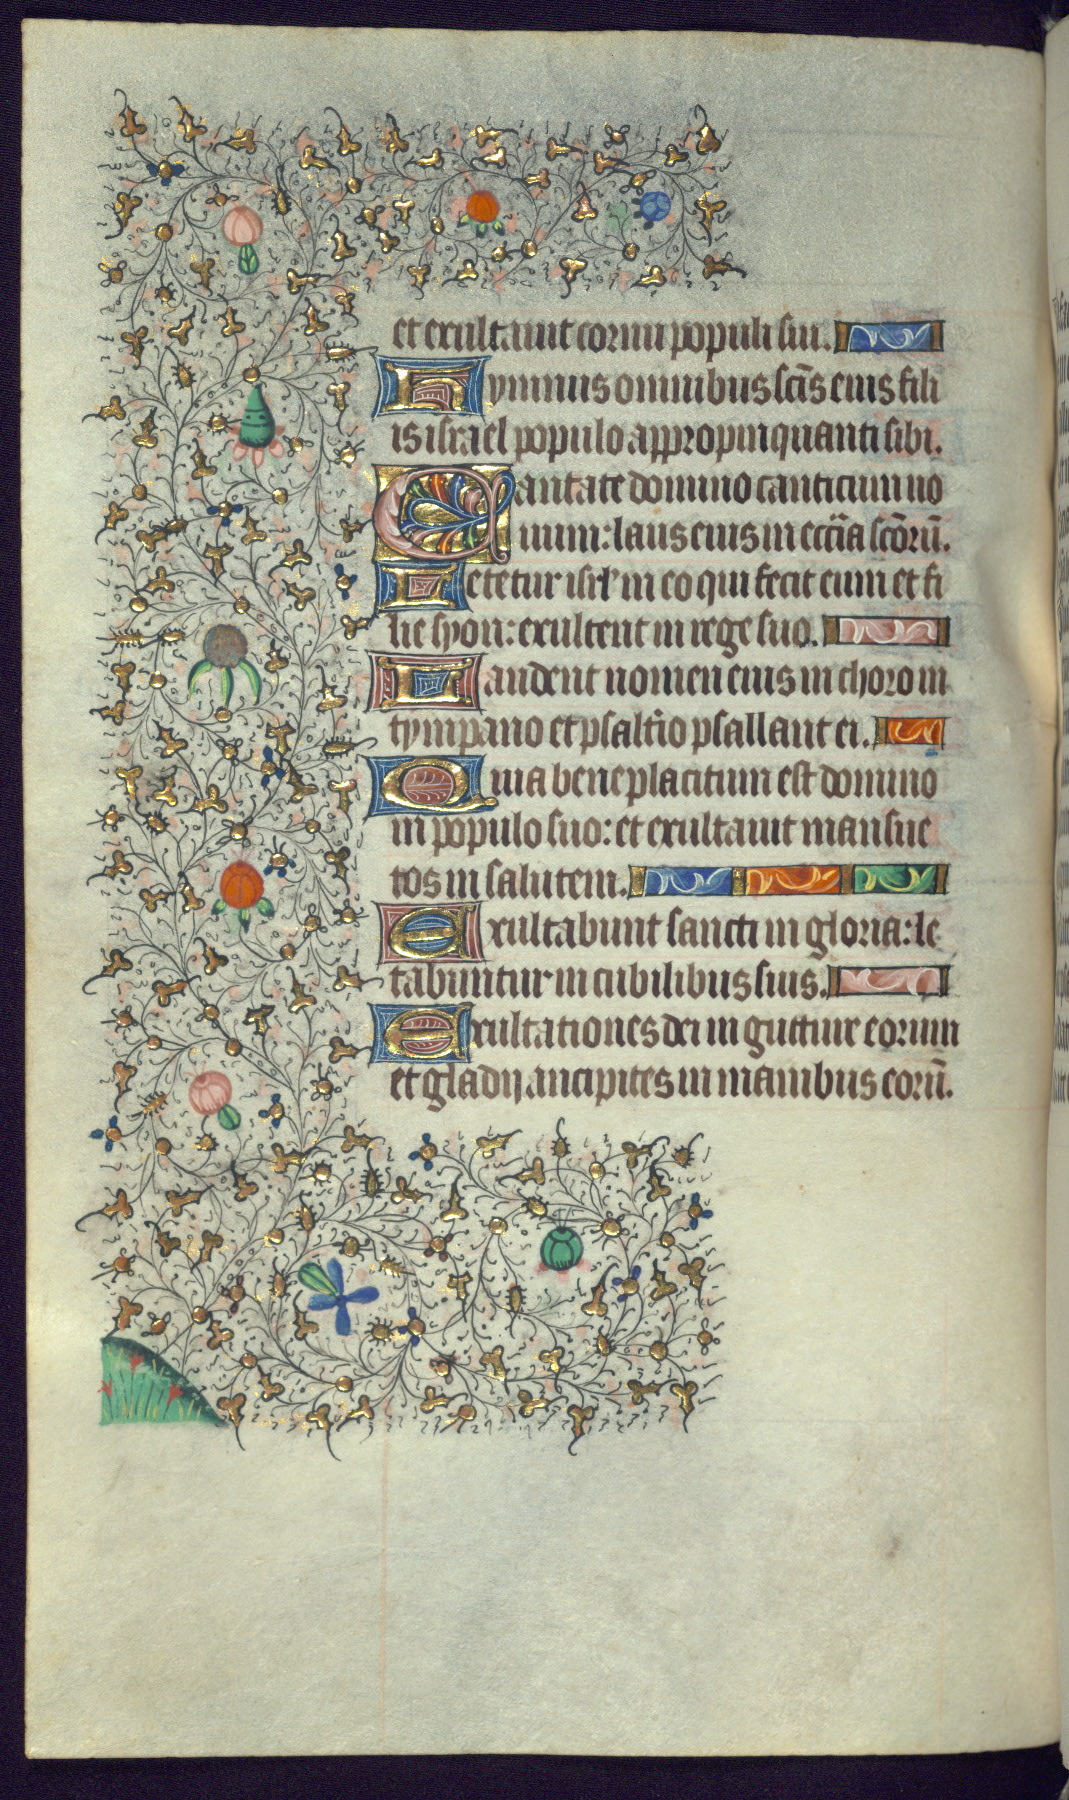 et exultauit cornu populi sui.
Hymnus omnibus sc̄is eius fili
is israel populo appropinquanti sibi.
Cantate domino canticum no
uum: laus eius in eccl̄ia sc̄orū.
Letetur isrl̄ in eo qui fecit eum et fi
lie syon: exultent in rege suo.
Laudent nomen eius in choro in
tympano et psalt̄io psallant ei.
Quia beneplacitum est domino
in populo suo: et exultauit mansue
tos in salutem.
Exultabunt sancti in gloria: le
tabuntur in cubilibus suis.
Exultationes dei in gutture eorum
et gladij ancipites in manibus eorū.